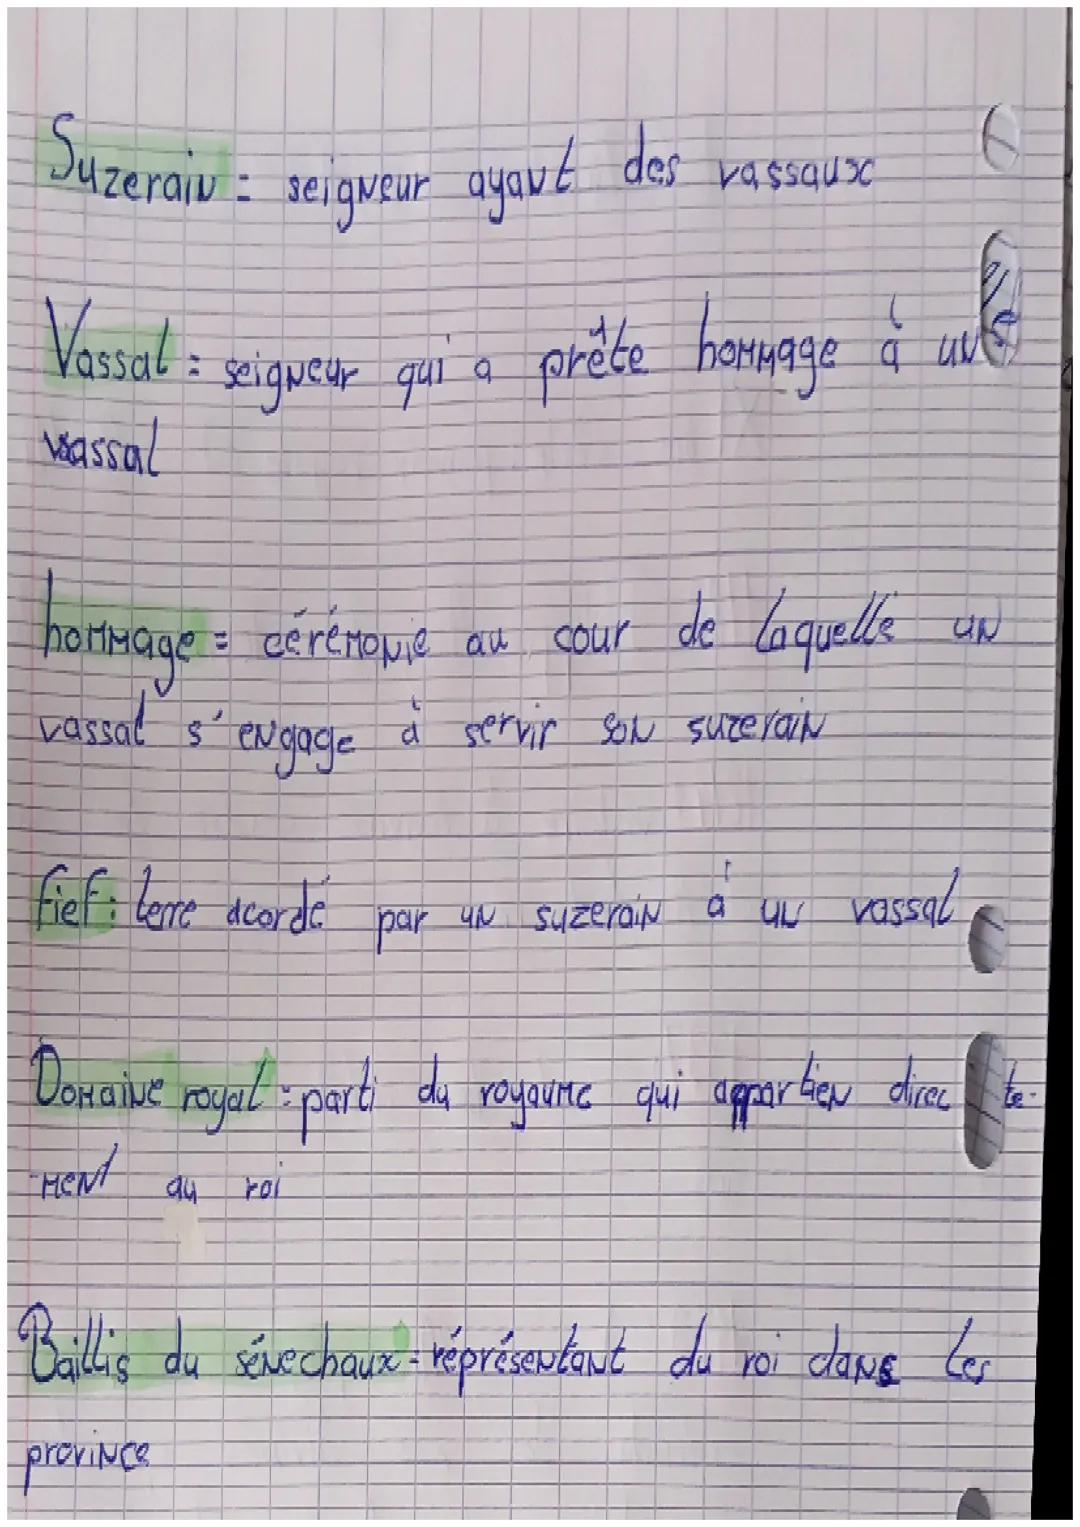 Suzerain = seigneur ayant des vassaux
Vassal = seigneur qui a prête hommage à un
vassal
hommage = cérémonie au cour de laquelle un
vassal s'engage à servir son suzerain
fief : terre acordé par un suzerain à un vassal
Domaine royal = parti du royaume qui appartien directe-
-ment au roi
Baillis du sénechaux = réprésentant du roi dans les
province